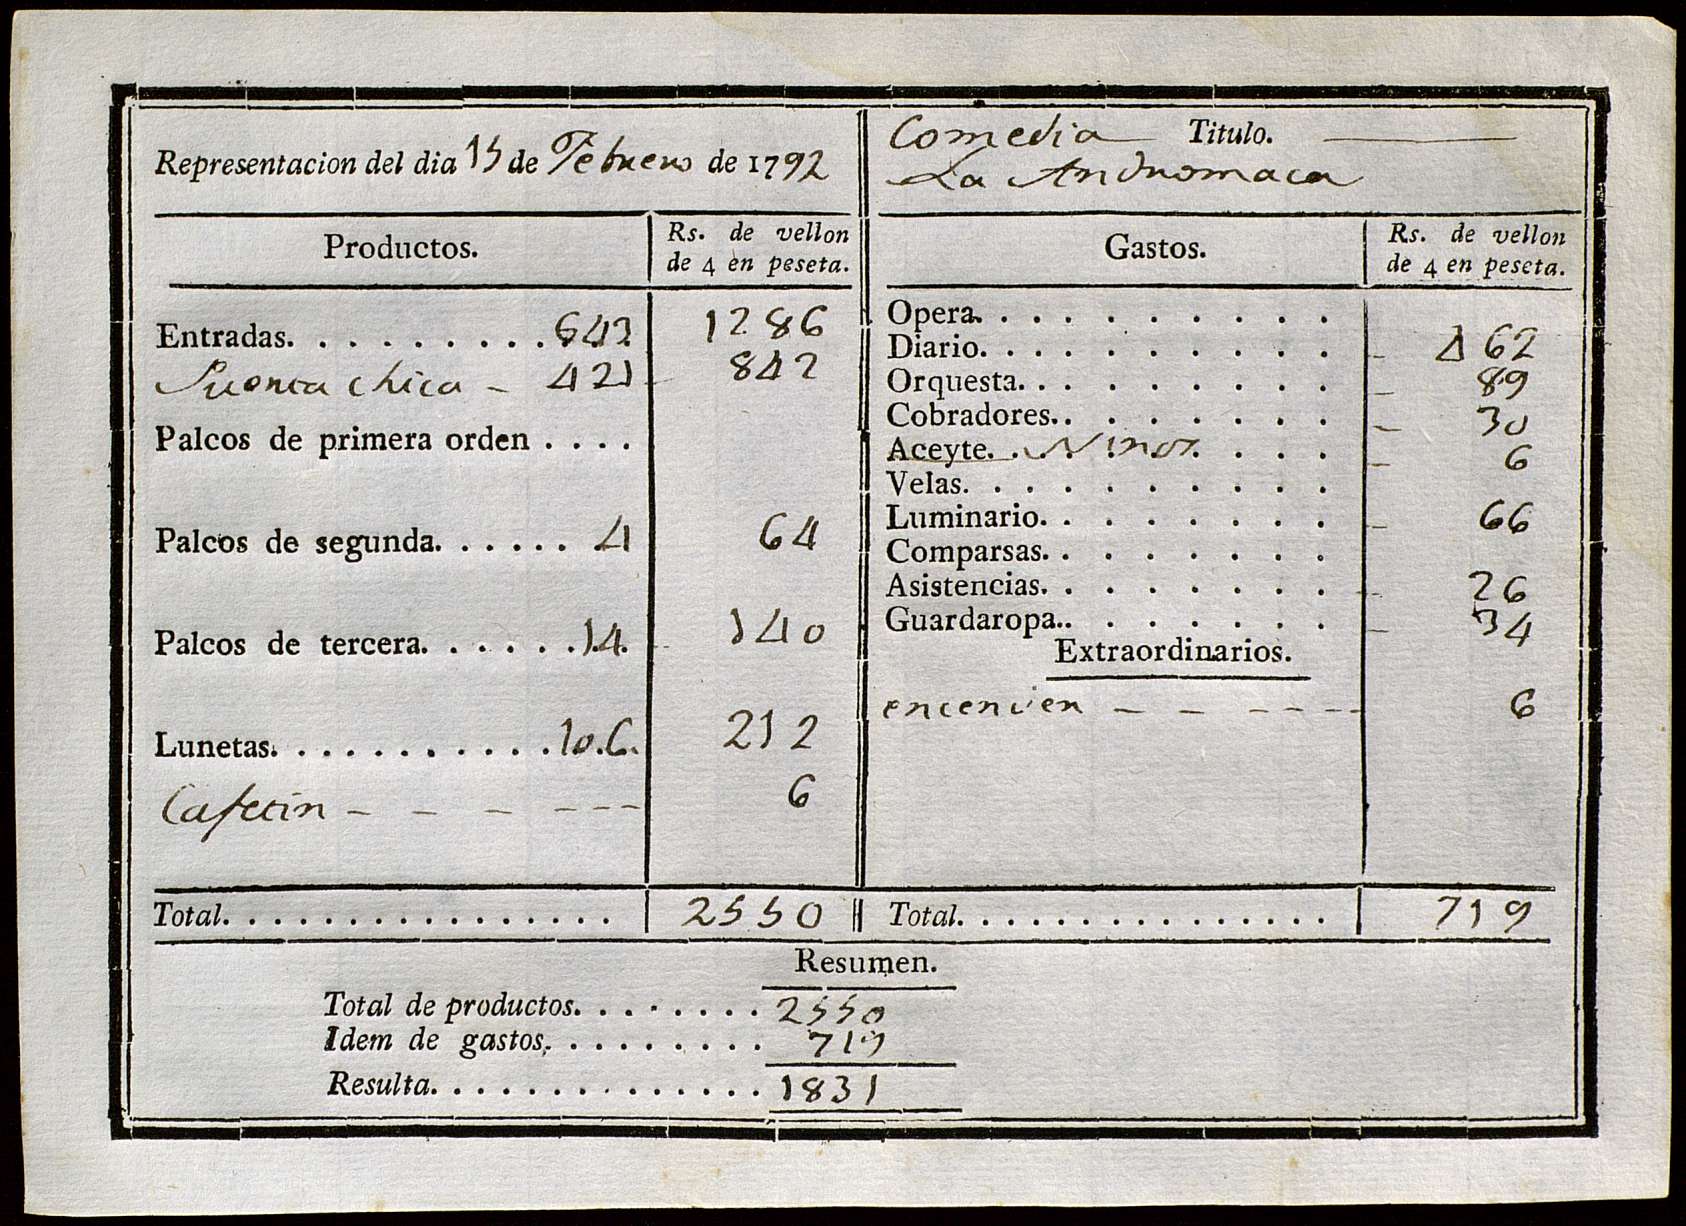 Representacion del dia 15 de Febrero de 1792
Productos.
Rs. de vellon
de 4 en peseta.
Entradas. . . . . . . . . . 643 1286
Puerta chica - 421 - 842
Palcos de primera orden . . . .
Palcos de segunda. . . . . . 4 64
Palcos de tercera. . . . . . 14. - 140
Lunetas. . . . . . . . . . . 106. 212
Cafetin - - - - - - 6
Total. . . . . . . . . . . . . . . . 2550
Comedia Titulo.
La Andromaca
Gastos.
Rs. de vellon
de 4 en peseta.
Opera. . . . . . . . . .
Diario. . . . . . . . . . - 462
Orquesta. . . . . . . . . - 89
Cobradores. . . . . . . . - 30
Aceyte. . Ninos . . . . - 6
Velas. . . . . . . . . .
Luminario. . . . . . . . - 66
Comparsas. . . . . . . .
Asistencias. . . . . . . . - 26
Guardaropa. . . . . . . . - 34
Extraordinarios.
encender - - - - - - 6
Total. . . . . . . . . . . . . . . 719
Resumen.
Total de productos. . . . . . . . 2550
Idem de gastos. . . . . . . . . 719
Resulta. . . . . . . . . . . . . . 1831